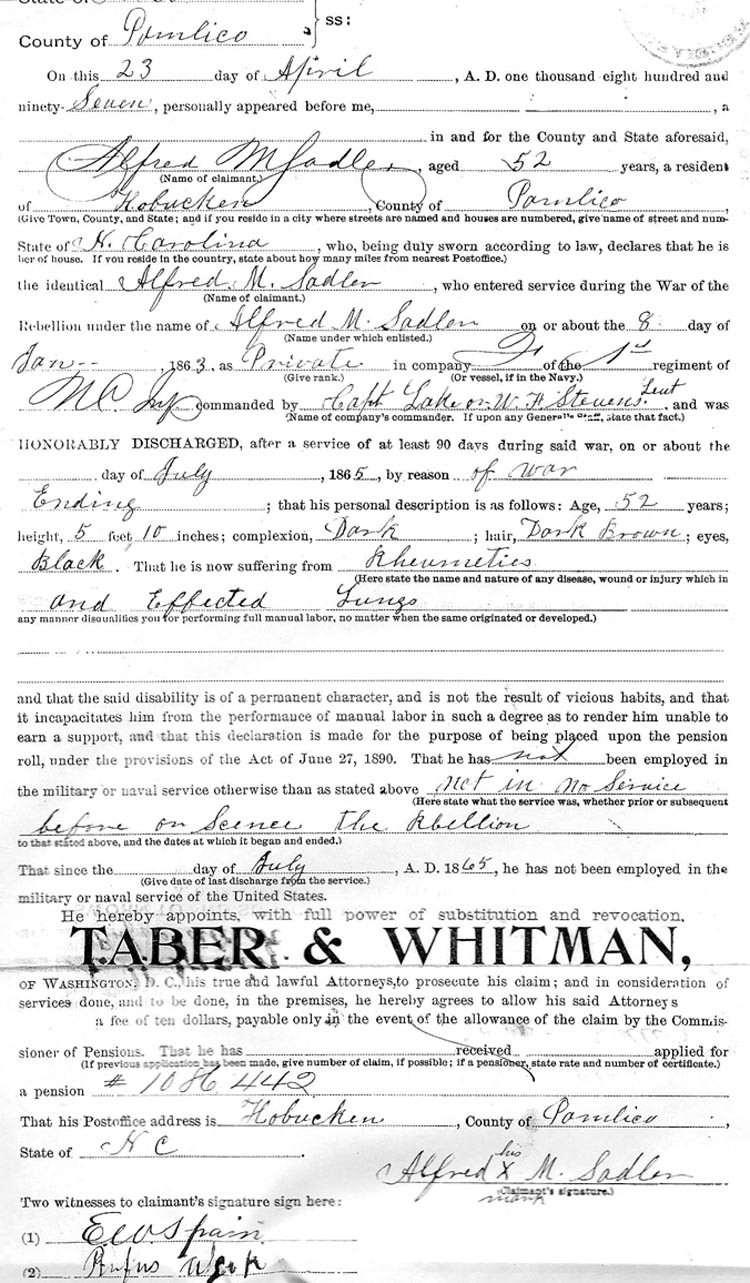 State of
County of Pomlico } ss:
On this 23 day of April, A. D. one thousand eight hundred and
ninety-Seven, personally appeared before me, , a
in and for the County and State aforesaid,
Alfred M Sadler, aged 52 years, a resident
(Name of claimant.)
of Hobucken, County of Pomlico,
(Give Town, County, and State; and if you reside in a city where streets are named and houses are numbered, give name of street and num-
State of N. Carolina, who, being duly sworn according to law, declares that he is
ber of house. If you reside in the country, state about how many miles from nearest Postoffice.)
the identical Alfred M. Sadler, who entered service during the War of the
(Name of claimant.)
Rebellion under the name of Alfred M. Sadler on or about the 8 day of
(Name under which enlisted.)
Jan, 1863, as Private in company of the 1st regiment of
(Give rank.) (Or vessel, if in the Navy.)
NC. Inf commanded by Capt Lake or W. F. Stevens Leut, and was
(Name of company's commander. If upon any General's Staff, state that fact.)
HONORABLY DISCHARGED, after a service of at least 90 days during said war, on or about the
day of July, 1865, by reason of war
Ending; that his personal description is as follows: Age, 52 years;
height, 5 feet 10 inches; complexion, Dark; hair, Dark Brown; eyes,
Black. That he is now suffering from Rheumetics
(Here state the name and nature of any disease, wound or injury which in
and Effected Lungs
any manner disqualifies you for performing full manual labor, no matter when the same originated or developed.)
and that the said disability is of a permanent character, and is not the result of vicious habits, and that
it incapacitates him from the performance of manual labor in such a degree as to render him unable to
earn a support, and that this declaration is made for the purpose of being placed upon the pension
roll, under the provisions of the Act of June 27, 1890. That he has not been employed in
the military or naval service otherwise than as stated above not in no Service
(Here state what the service was, whether prior or subsequent
before or Scence the Rbellion
to that stated above, and the dates at which it began and ended.)
That since the day of July, A. D. 1865, he has not been employed in the
(Give date of last discharge from the service.)
military or naval service of the United States.
He hereby appoints, with full power of substitution and revocation,
TABER & WHITMAN,
OF WASHINGTON, D. C., his true and lawful Attorneys, to prosecute his claim; and in consideration of
services done, and to be done, in the premises, he hereby agrees to allow his said Attorneys
a fee of ten dollars, payable only in the event of the allowance of the claim by the Commis-
sioner of Pensions. That he has received applied for
(If previous application has been made, give number of claim, if possible; if a pensioner, state rate and number of certificate.)
a pension # 1086 442
That his Postoffice address is Hobucken, County of Pomlico,
State of N C.
his
Alfred X M. Sadler
mark (Claimant's signature.)
Two witnesses to claimant's signature sign here:
(1) E W Spain
(2) Rufus